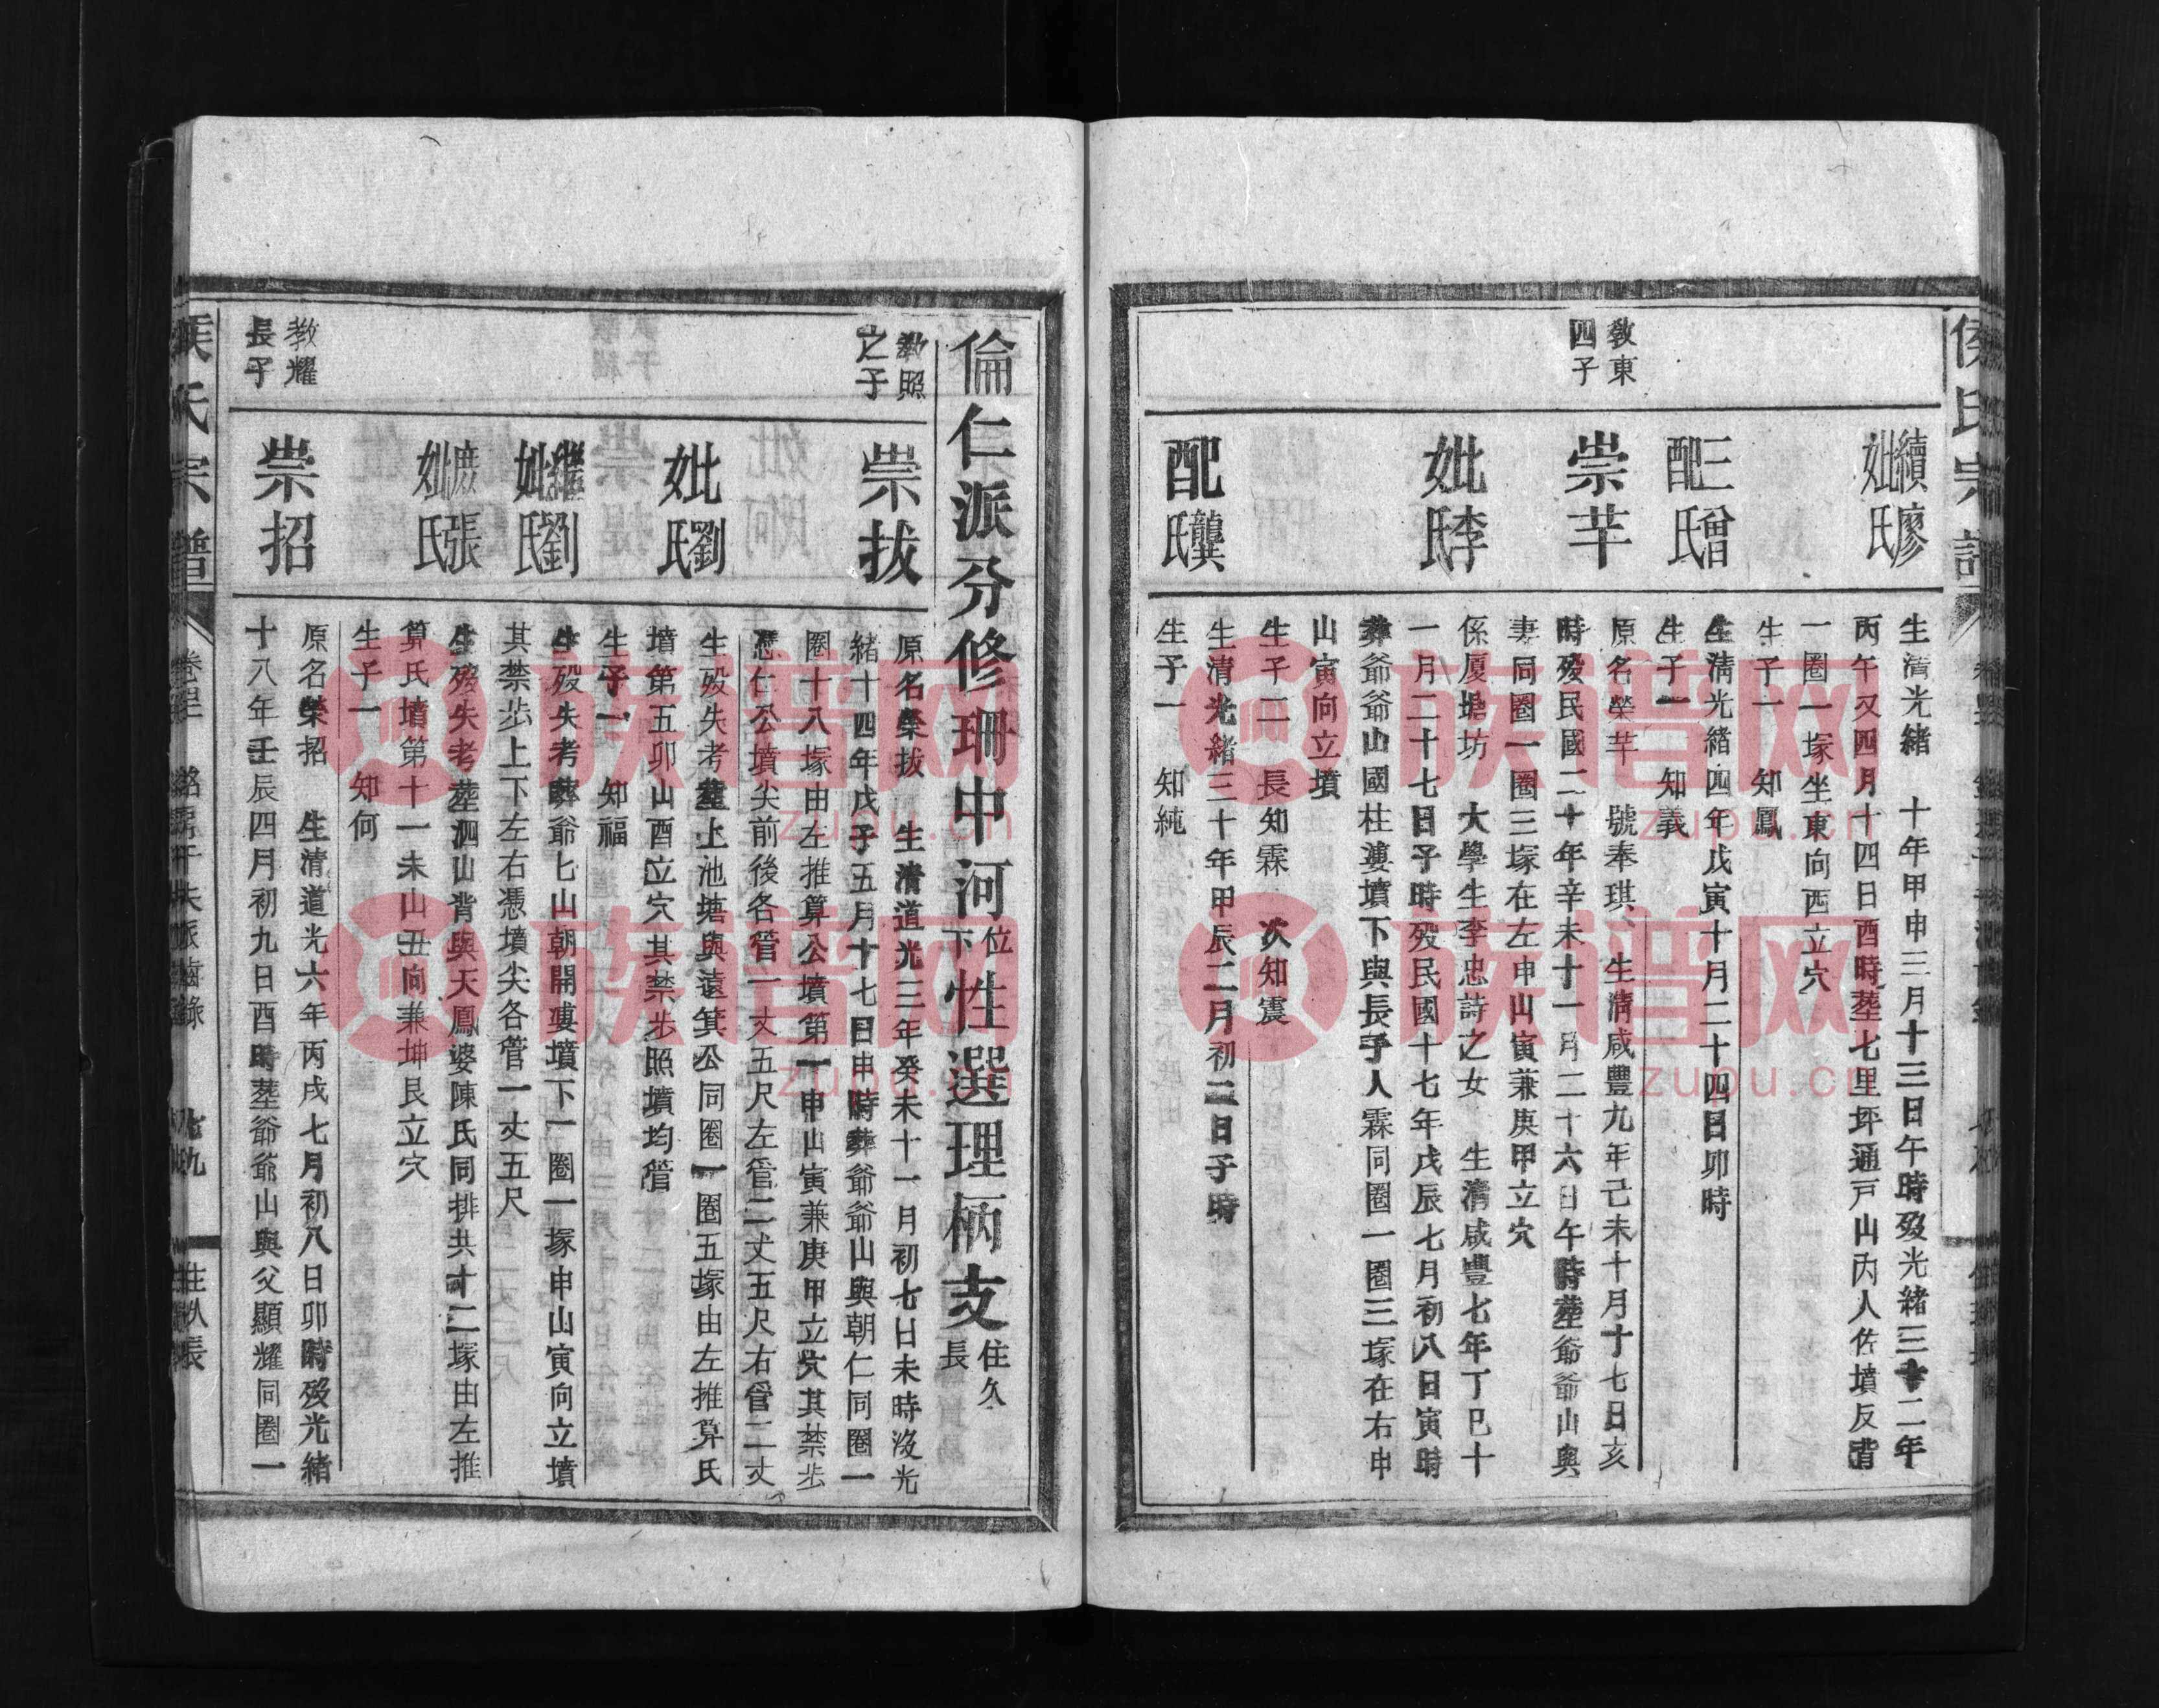 侯氏宗譜
續妣廖氏
生清光緒 十年甲申三月十三日午時歿光緒三十二年
丙午又四月十四日酉時塟七里坪通戸山內人佐墳反背
一圈一塚坐東向西立穴
生子一 知鳳
三配曾氏
生清光緒四年戊寅十月二十四日卯時
生子一 知義
教東四子
崇芉
原名榮芉 號奉琪 生清咸豐九年己未十月十七日亥
時歿民國二十年辛未十一月二十六日午時塟爺爺山與
妻同圈一圈三塚在左申山寅兼庚甲立穴
妣李氏
係厦塘坊 大學生李忠詩之女 生清咸豐七年丁巳十
一月二十七日子時歿民國十七年戊辰七月初八日寅時
葬爺爺山國柱婆墳下與長子人霖同圈一圈三塚在右申
山寅向立墳
生子二 長知霖 次知震
配龔氏
生清光緒三十年甲辰二月初二日子時
生子一 知純
倫仁派分修珊中河位下性選理柄支住久長
教照之子
崇拔
原名榮拔 生清道光三年癸未十一月初七日未時沒光
緒十四年戊子五月十七日申時葬爺爺山與朝仁同圈一
圈十八塚由左推算公墳第一申山寅兼庚甲立穴其禁步
憑仁公墳尖前後各管一丈五尺左管二丈五尺右管二丈
妣劉氏
生歿失考塟上池塘與遠箕公同圈一圈五塚由左推算氏
墳第五卯山酉立穴其禁步照墳均管
生子一 知福
繼妣劉氏
生歿失考葬爺七山朝開婆墳下一圈一塚申山寅向立墳
其禁步上下左右憑墳尖各管一丈五尺
庶妣張氏
生歿失考塟泗山背與天鳳婆陳氏同排共十二塚由左推
算氏墳第十一未山丑向兼坤艮立穴
生子一 知何
教耀長子
崇招
原名榮招 生清道光六年丙戌七月初八日卯時歿光緒
十八年壬辰四月初九日酉時塟爺爺山與父顯耀同圈一
族氏宗譜
七九